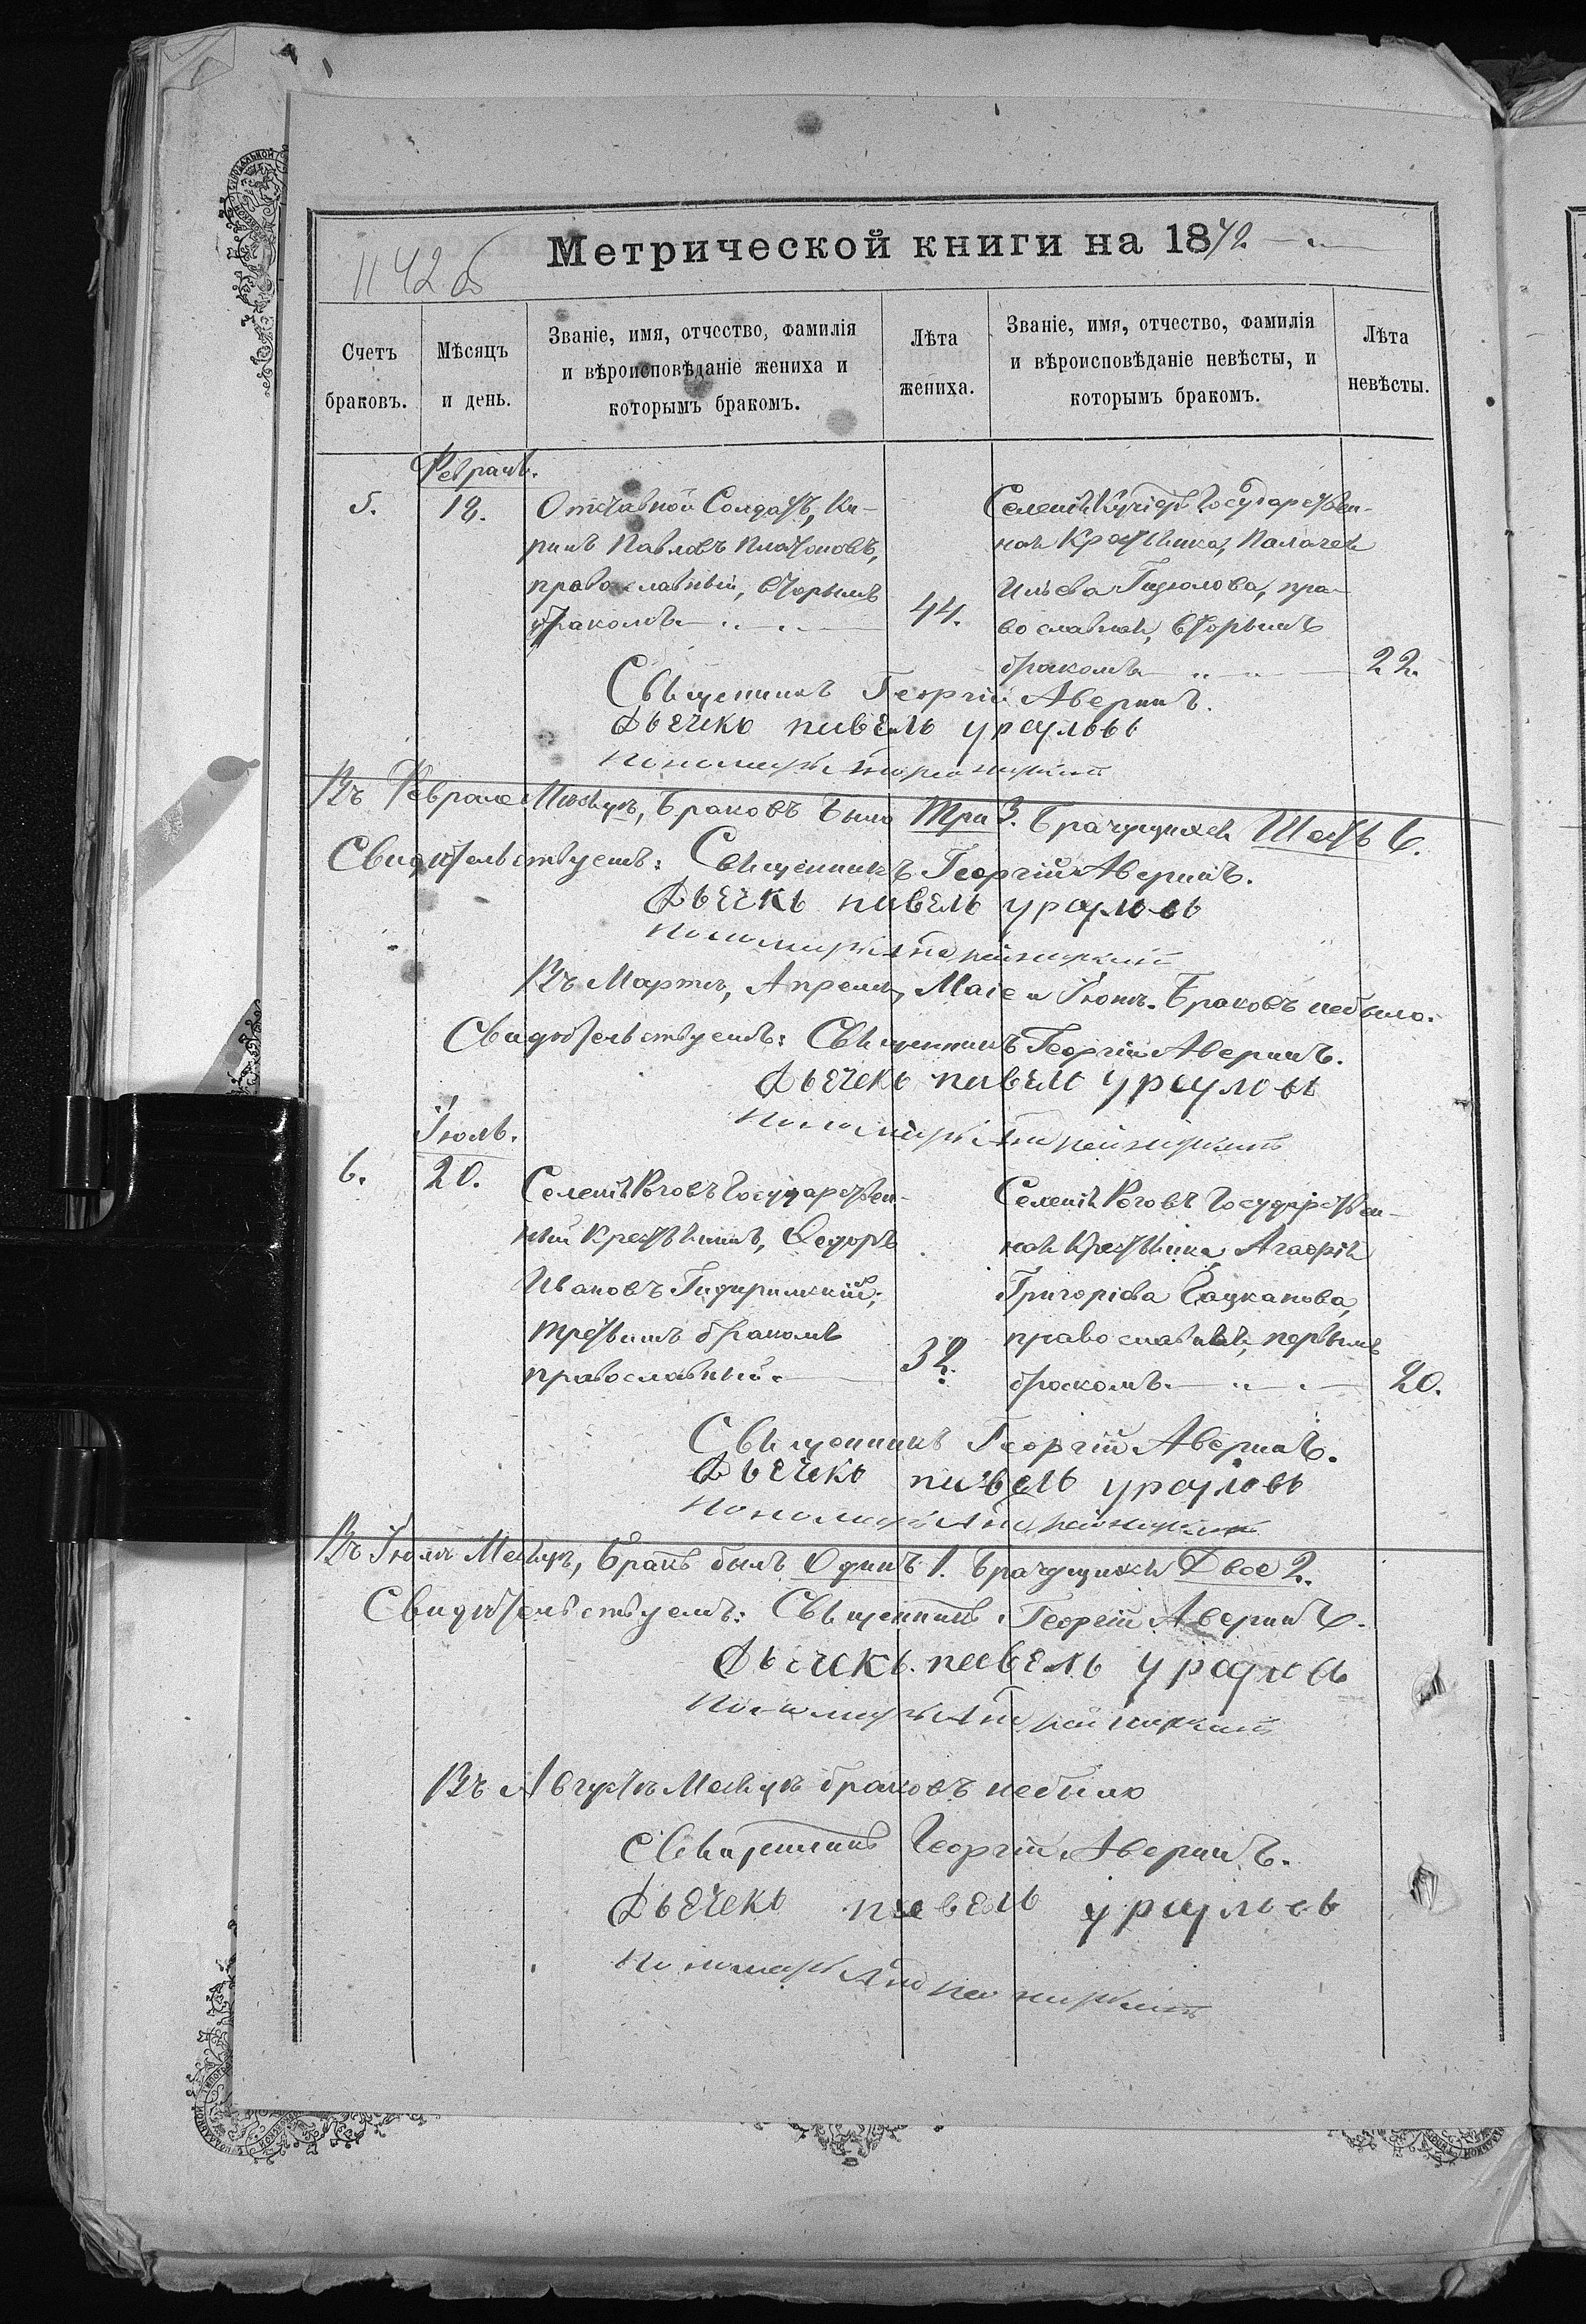 Метрической книги на 1872
1142 об
Счетъ браковъ.
Мѣсяцъ и день.
Званіе, имя, отчество, фамилія и вѣроисповѣданіе жениха и которымъ бракомъ.
Лѣта жениха.
Званіе, имя, отчество, фамилія и вѣроисповѣданіе невѣсты, и которымъ бракомъ.
Лѣта невѣсты.
Февраль.
5.
18.
Отставной Солдатъ, Ки-
рилъ Павловъ Платоновъ,
православный, вторымъ
бракомъ
44.
Селенія Государствен-
ная Крестьянка, Палагея
Ильева, пра-
вославная, вторымъ
бракомъ
22.
Священникъ Георгій Аверинъ.
Дьячекъ павелъ урсуловъ
Пономарь
Въ Февралѣ Месяцѣ, Браковъ было Три 3. Брачущихся Шесть 6.
Свидѣтельствуемъ: Священникъ Георгій Аверинъ.
Дьячекъ павелъ урсуловъ
Пономарь
Въ Мартѣ, Апрелѣ, Маіе и Іюнѣ. Браковъ небыло.
Свидѣтельствуемъ: Священникъ Георгій Аверинъ.
Дьячекъ павелъ урсуловъ
Пономарь
Іюль.
6.
20.
Селенія Роговъ Государствен-
ный Крестьянинъ, Ѳедоръ
Ивановъ Гидиримскій;
третьимъ бракомъ
православный.
32.
Селенія Роговъ Государствен-
ная Крестьянка Агафія
Григоріева Цацканова,
православная, первымъ
бракомъ
20.
Священникъ Георгій Аверинъ.
Дьячекъ павелъ урсуловъ
Пономарь
Въ Іюлѣ Месяцѣ, Бракъ былъ Одинъ 1. Брачущихся Двое 2.
Свидѣтельствуемъ: Священникъ Георгій Аверинъ.
Дьячекъ павелъ урсуловъ
Пономарь
Въ Августѣ Месяцѣ браковъ небыло
Священникъ Георгій Аверинъ.
Дьячекъ павелъ урсуловъ
Пономарь